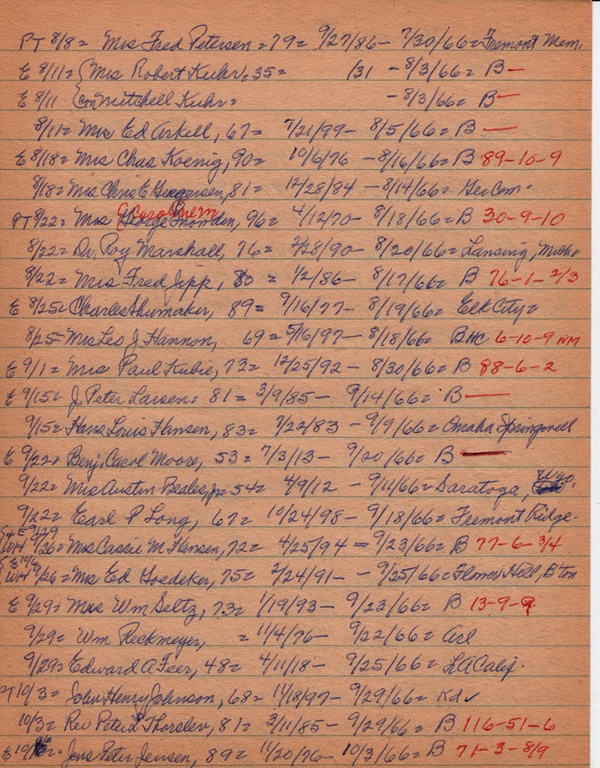 PT 8/8= Mrs Fred Petersen = 79= 9/27/86- 7/30/66= Fremont Mem.
E 8/11= {Mrs Robert Kuhr, 35= /31 - 8/3/66= B—
E 8/11 {con Mitchell Kuhr= - 8/3/66= B—
8/11= Mrs Ed Arkell, 67= 7/21/99- 8/5/66= B —
E 8/18= Mrs Chas Koenig, 90= 10/6/76 - 8/16/66= B 89-10-9
8/18= Mrs Chris E 81= 12/28/84 - 8/14/66= Ger Cem.
PT 8/22= Mrs George Snowden, 96= 4/12/70- 8/18/66= B 30-9-10
8/22= Dr. Roy Marshall, 76= 2/28/90- 8/20/66= Lansing, Mich.
8/22= Mrs Fred Jipp, 80 = 1/2/86- 8/17/66= B 76-1-2/3
E 8/25= Charles Shumaker, 89= 9/16/77- 8/19/66= Elk City=
8/25= Mrs Leo J Hannon, 69= 5/16/97- 8/18/66= BHC 6-10-9 NM
E 9/1= Mrs Paul Kubie, 73= 12/25/92- 8/30/66= B 88-6-2
E 9/15= J. Peter Larsen= 81= 3/9/85- 9/14/66= B—
9/15= Hans Louis Hansen, 83= 7/22/83- 9/9/66= Omaha Springwell
E 9/22= Benj. Carol Moore, 53= 7/3/13- 9/20/66= B —
9/22= Mrs Austin Beales, jr= 54= 4/9/12- 9/11/66= Saratoga, Wyo.
9/22= Earl P Long, 67= 10/24/98- 9/18/66= Fremont Ridge.
WH 9/26= Mrs Cassie M. Hansen, 72= 4/25/94 = 9/23/66= B 77-6-3/4
WH 9/26= Mrs Ed Goedeker, 75= 2/24/91- - 9/25/66= Flower Hill, B ton
E 9/29= Mrs Wm Seltz, 73= 1/19/93- 9/23/66= B 13-9-9
9/29= Wm Reckmeyer, = 11/4/76- 9/22/66= Arl
9/29= Edward A Feer, 48= 4/11/18- 9/25/66= LA Calif.
PT 10/3= John Henry Johnson, 68= 11/18/97- 9/29/66= Kd
10/3= Rev Peter L Thorslev, 81= 3/11/85- 9/29/66= B 116-51-6
E 10/6= Jens Peter Jensen, 89= 11/20/76- 10/3/66= B 71-3-8/9